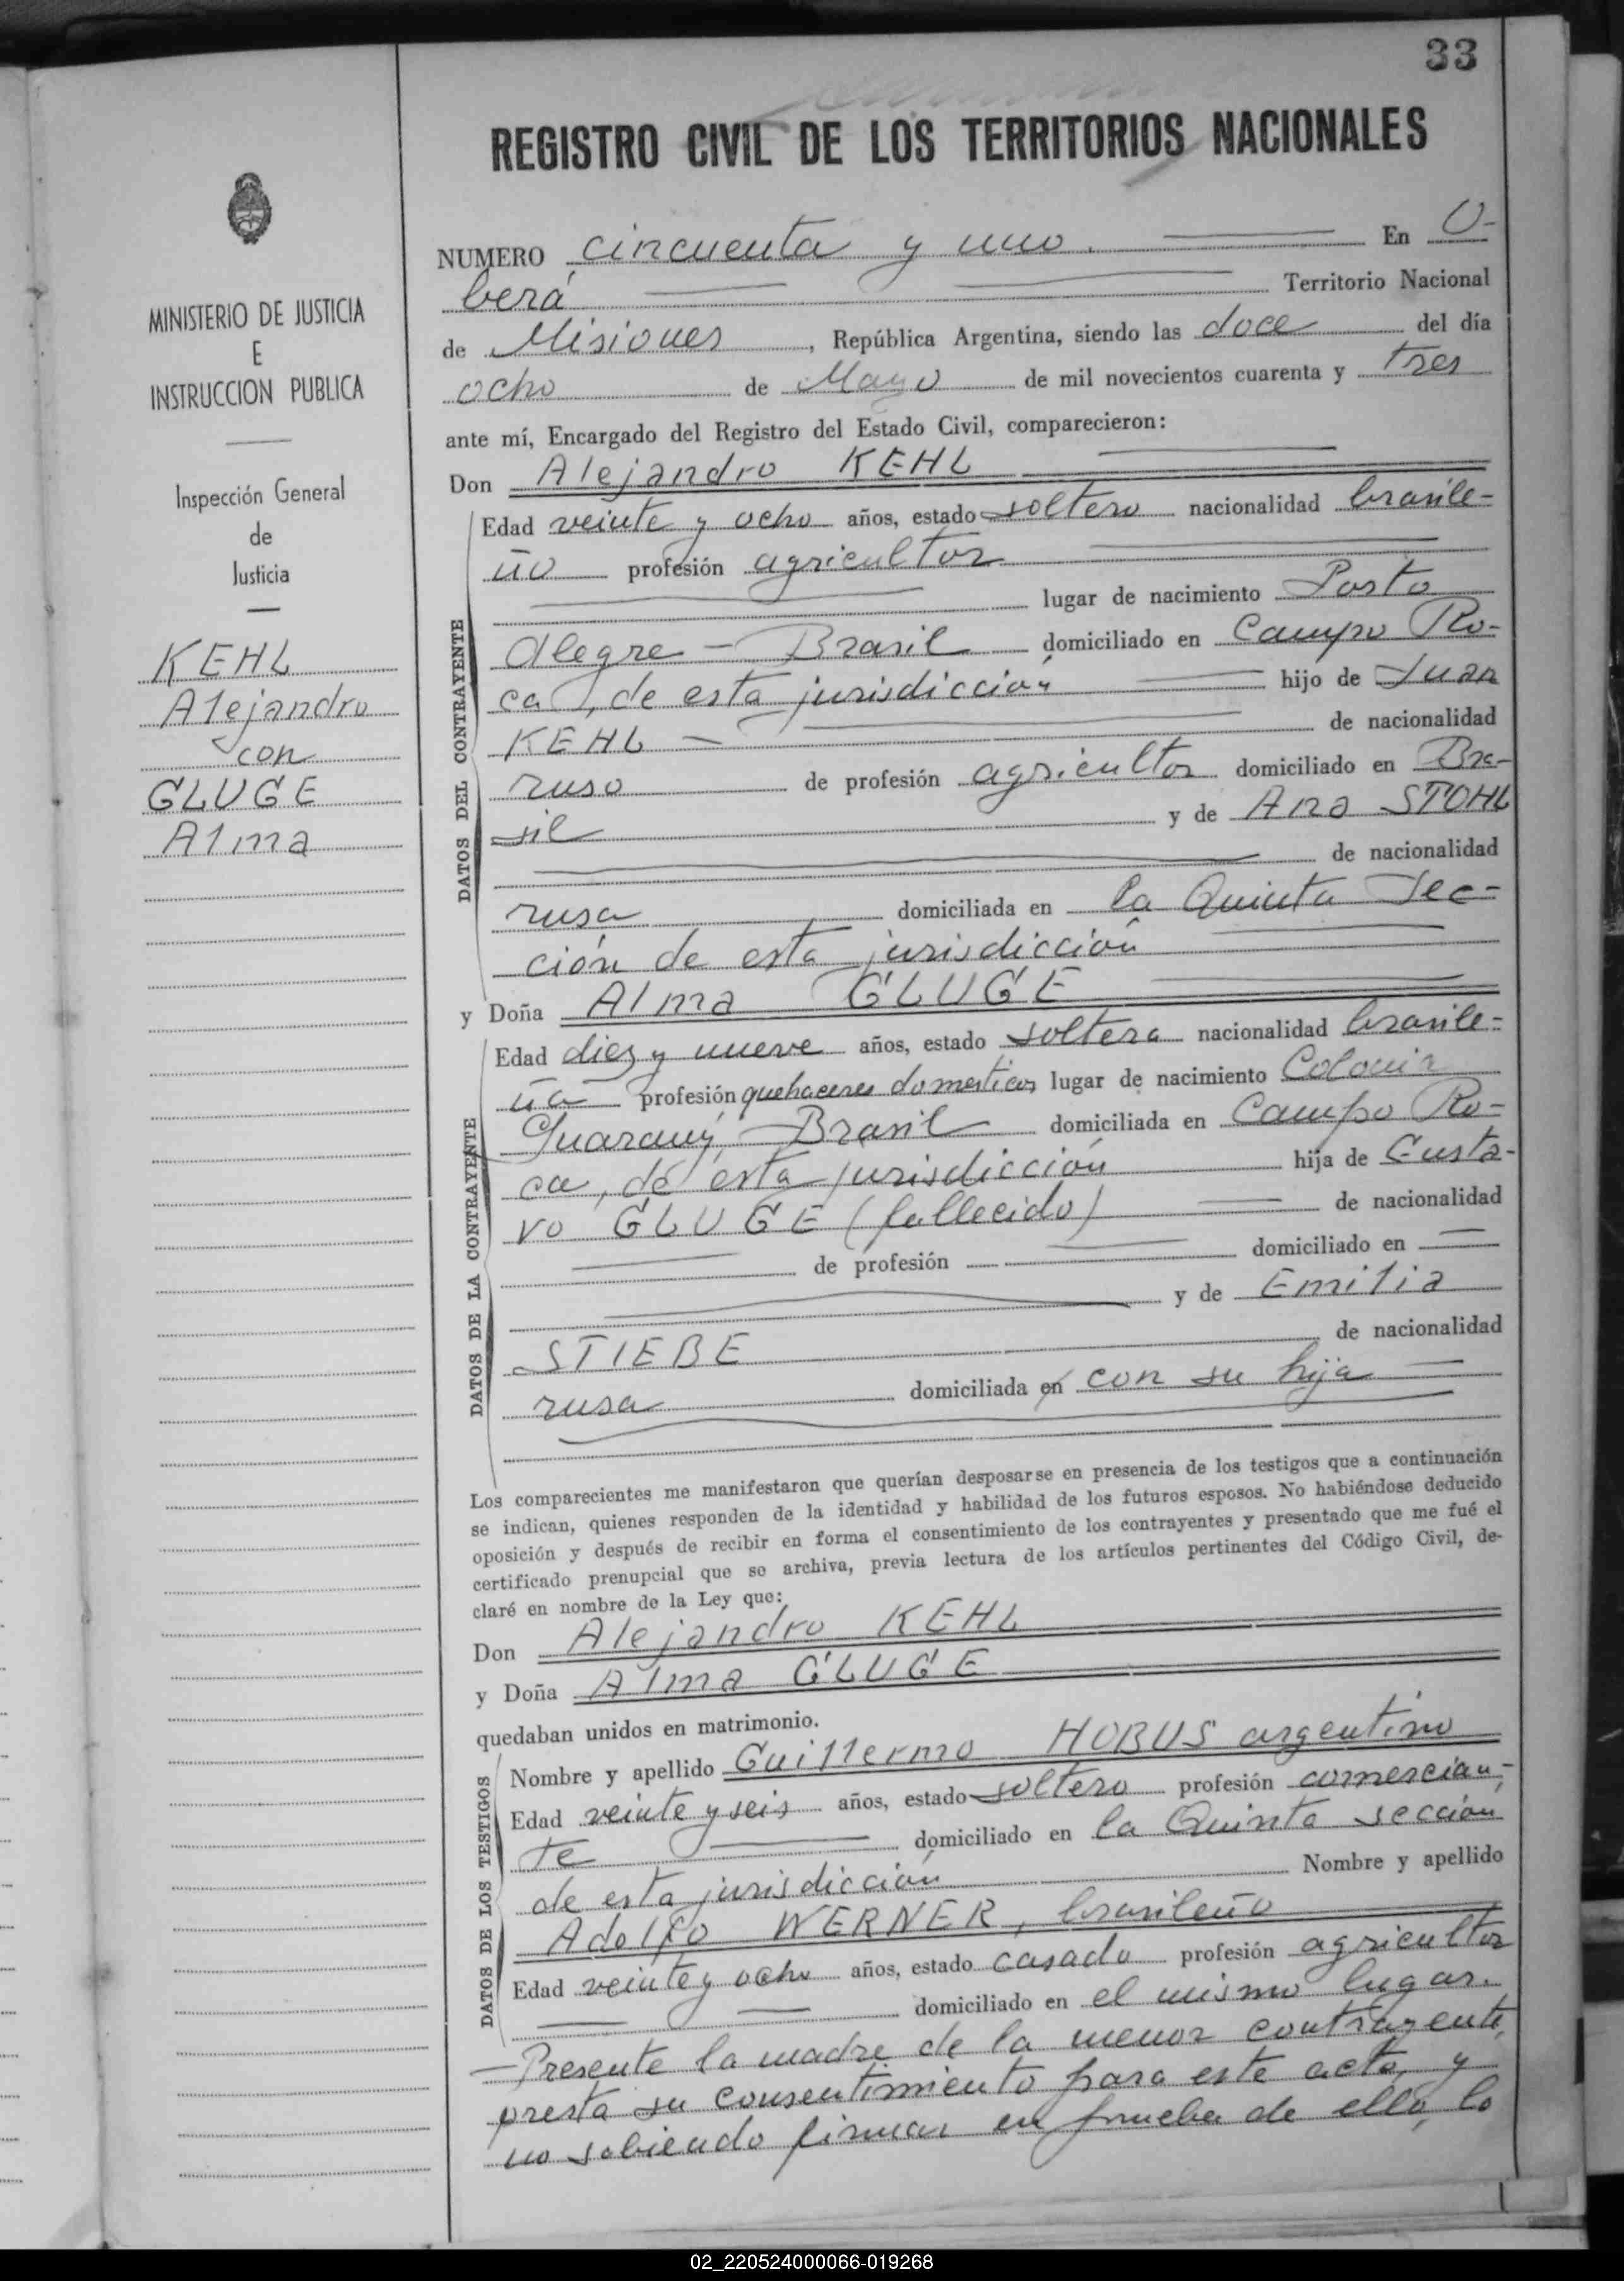 33
REGISTRO CIVIL DE LOS TERRITORIOS NACIONALES
MINISTERIO DE JUSTICIA
E
INSTRUCCION PUBLICA
Inspección General
de
Justicia
KEHL
Alejandro
con
GLUGE
Alma
NUMERO cincuenta y uno. En O-
berá Territorio Nacional
de Misiones, República Argentina, siendo las doce del día
ocho de Mayo de mil novecientos cuarenta y tres
ante mí, Encargado del Registro del Estado Civil, comparecieron:
Don Alejandro KEHL
DATOS DEL CONTRAYENTE
Edad veinte y ocho años, estado soltero nacionalidad brasile=
ño profesión agricultor
lugar de nacimiento Porto
Alegre - Brasil domiciliado en Campo Ro-
ca, de esta jurisdicción hijo de Juan
KEHL - de nacionalidad
ruso de profesión agricultor domiciliado en Bra-
sil y de Ana STOHL
de nacionalidad
rusa domiciliada en la Quinta Sec=
ción de esta jurisdicción
y Doña Alma GLUGE
DATOS DE LA CONTRAYENTE
Edad diez y nueve años, estado soltera nacionalidad brasile=
ña profesión quehaceres domesticos lugar de nacimiento Colonia
Guarany, Brasil domiciliada en Campo Ro-
ca, de esta jurisdicción hija de Gusta-
vo GLUGE (fallecido) de nacionalidad
de profesión domiciliado en
y de Emilia
STIEBE de nacionalidad
rusa domiciliada en con su hija
Los comparecientes me manifestaron que querían desposarse en presencia de los testigos que a continuación
se indican, quienes responden de la identidad y habilidad de los futuros esposos. No habiéndose deducido
oposición y después de recibir en forma el consentimiento de los contrayentes y presentado que me fué el
certificado prenupcial que se archiva, previa lectura de los artículos pertinentes del Código Civil, de-
claré en nombre de la Ley que:
Don Alejandro KEHL
y Doña Alma GLUGE
quedaban unidos en matrimonio.
DATOS DE LOS TESTIGOS
Nombre y apellido Guillermo HOBUS argentino
Edad veinte y seis años, estado soltero profesión comercian-
te domiciliado en la Quinta sección
de esta jurisdicción Nombre y apellido
Adolfo WERNER, brasileño
Edad veinte y ocho años, estado casado profesión agricultor
domiciliado en el mismo lugar.
-Presente la madre de la menor contrayente,
presta su consentimiento para este acto, y
no sabiendo firmar en prueba de ello, lo
02_220524000066-019268